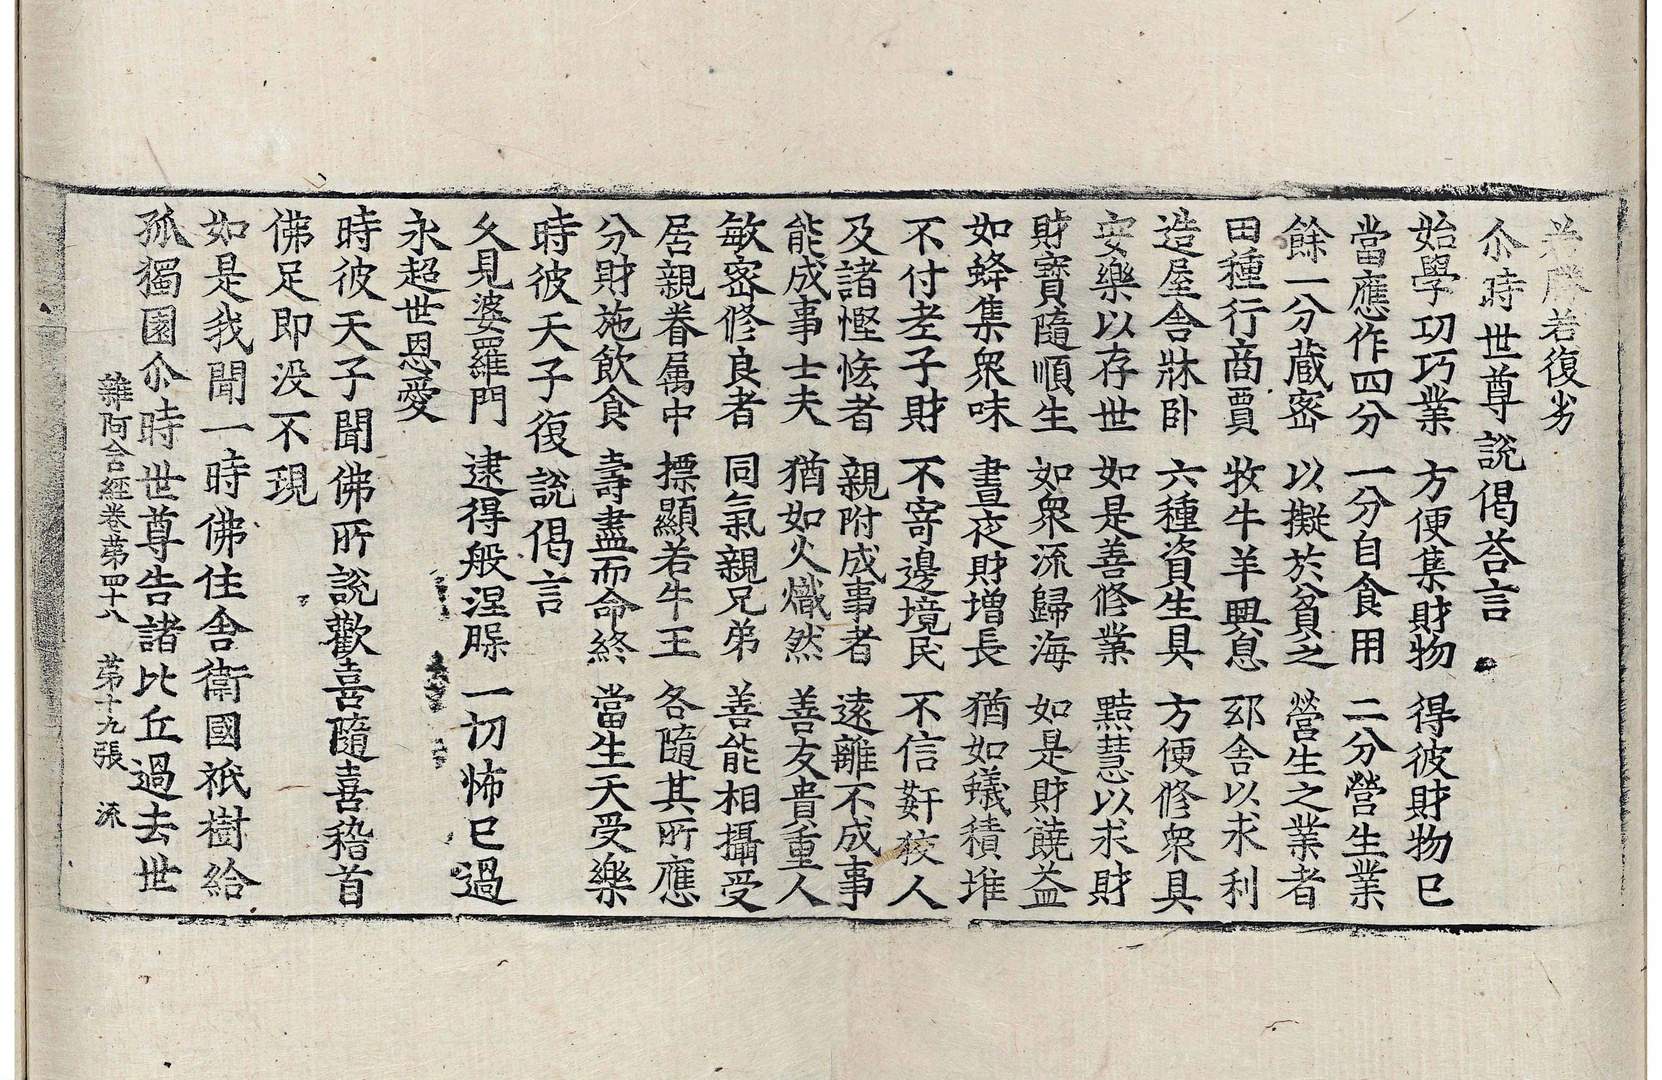 若勝若復劣
尒時世尊說偈荅言
始學㓛巧業 方便集財物 得彼財物已
當應作四分 一分自食用 二分營生業
餘一分蔵密 以擬於貧乏 營生之業者
田種行商賈 牧牛羊興息 邸舍以求利
造屋舍牀卧 六種資生具 方便修衆具
安樂以存世 如是善修業 黠慧以求財
財寶隨順生 如衆流歸海 如是財饒益
如蜂集衆味 晝夜財增長 猶如蟻積堆
不付老子財 不寄邊境民 不信姧狡人
及諸慳悋者 親附成事者 遠離不成事
能成事士夫 猶如火熾然 善友貴重人
敏密修良者 同氣親兄弟 善能相攝受
居親眷属中 摽顯若牛王 各隨其所應
分財施飲食 壽盡而命終 當生天受樂
時彼天子復說偈言
乆見婆羅門 逮得般涅槃 一切怖已過
永超世恩愛
時彼天子聞佛所說歡喜隨喜稽首
佛足即没不現
如是我聞一時佛住舍衛國祇樹給
孤獨園尒時世尊告諸比丘過去世
雜阿含經卷苐四十八 苐十九張 流